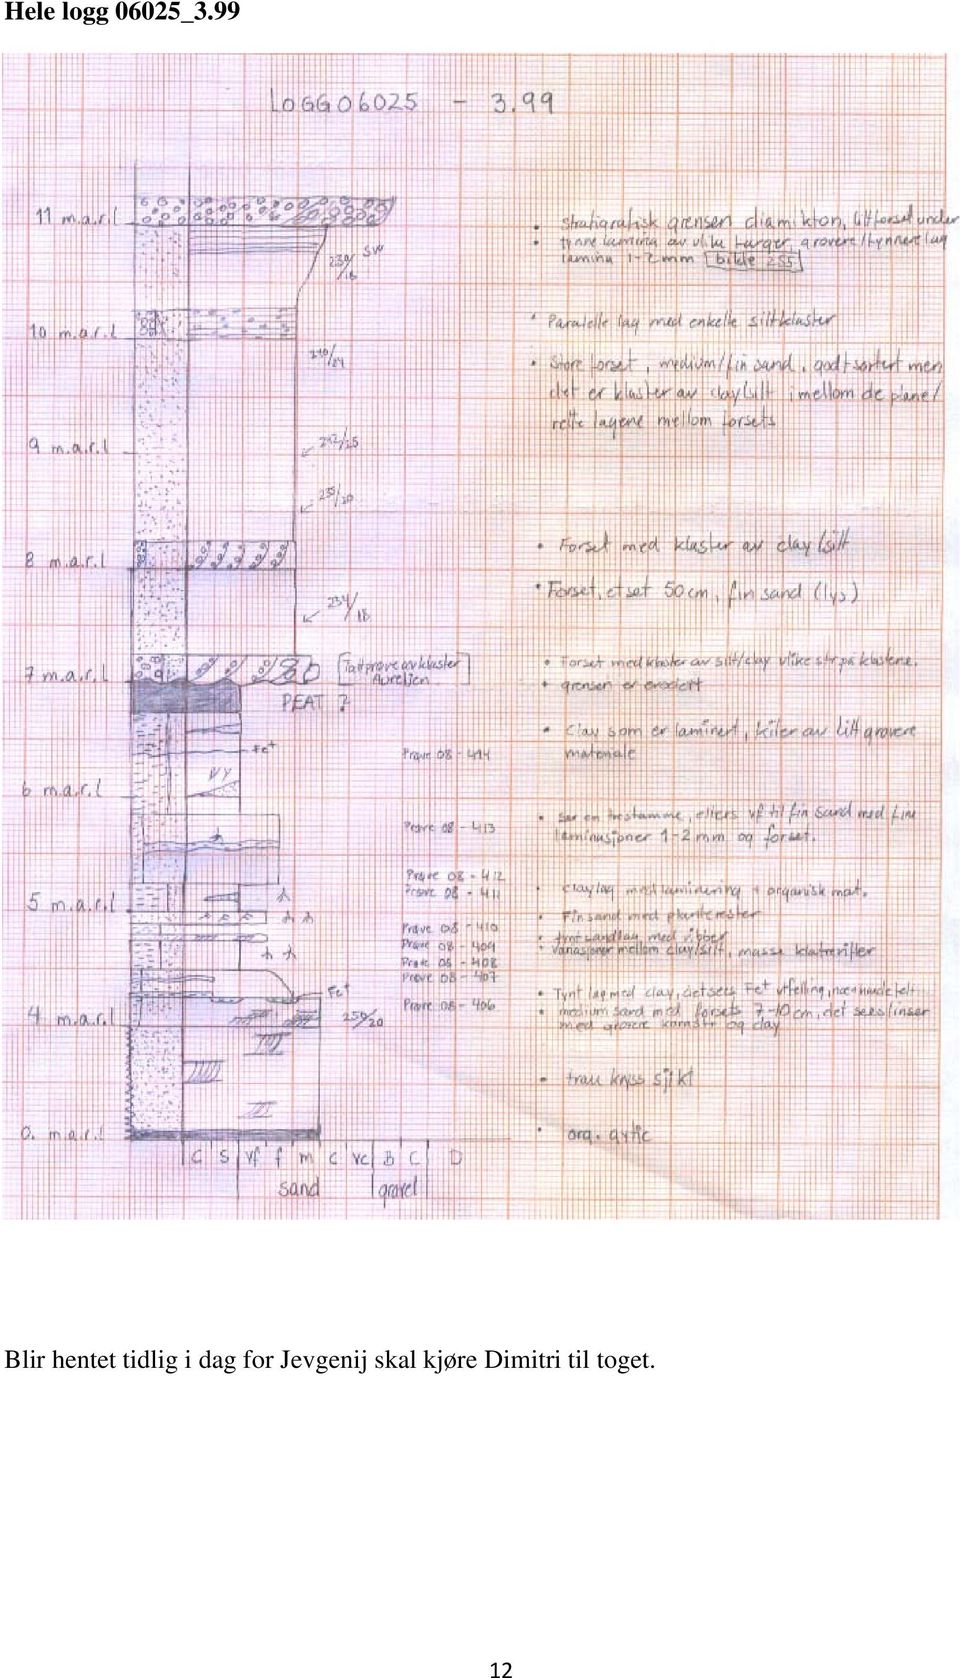 Hele logg 06025_3.99
LOGG 06025 - 3.99
11 m.a.r.l
• Stratigrafisk grensen diamikton, litt forset under
• tynne lamina av ulike farger, grovere/tynnere lag
lamina 1-2 mm bilde 255
230/18 sv
10 m.a.r.l
• Paralelle lag med enkelle siltklaster
210/24
• Store forset, medium/fin sand, godt sortert men
det er klaster av clay/silt imellom de plane/
rette lagene mellom forsets
9 m.a.r.l
212/25
235/20
8 m.a.r.l
• Forset med klaster av clay/silt
• Forset, et set 50 cm, fin sand (lys)
234/18
7 m.a.r.l
[Tatt prøve av klaster
Aurelien]
• Forset med klaster av silt/clay ulike str på klastene.
• grensen er erodert
PEAT ?
• Clay som er laminert, kiler av litt grovere
materiale
Fe+
Prøve 08 - 414
6 m.a.r.l
• Ser en trestamme, ellers vf til fin sand med fine
laminasjoner 1-2 mm og forset.
Prøve 08 - 413
Prøve 08 - 412
Prøve 08 - 411
• clay lag med laminering + organisk mat.
5 m.a.r.l
• Fin sand med planterester
Prøve 08 - 410
• tynt sandlag med ribber
Prøve 08 - 409
• variasjoner mellom clay/silt, masse klatrerifler
Prøve 08 - 408
Prøve 08 - 407
Fe+
• Tynt lag med clay, det sees Fe+ utfelling,
Prøve 08 - 406
4 m.a.r.l
250/20
• medium sand med forsets 7-10 cm, det sees linser
med grovere kornstr og clay
• trau kryss sjikt
0. m.a.r.l
• org. gytje
C S vf f m c vc B C D
sand gravel
Blir hentet tidlig i dag for Jevgenij skal kjøre Dimitri til toget.
12